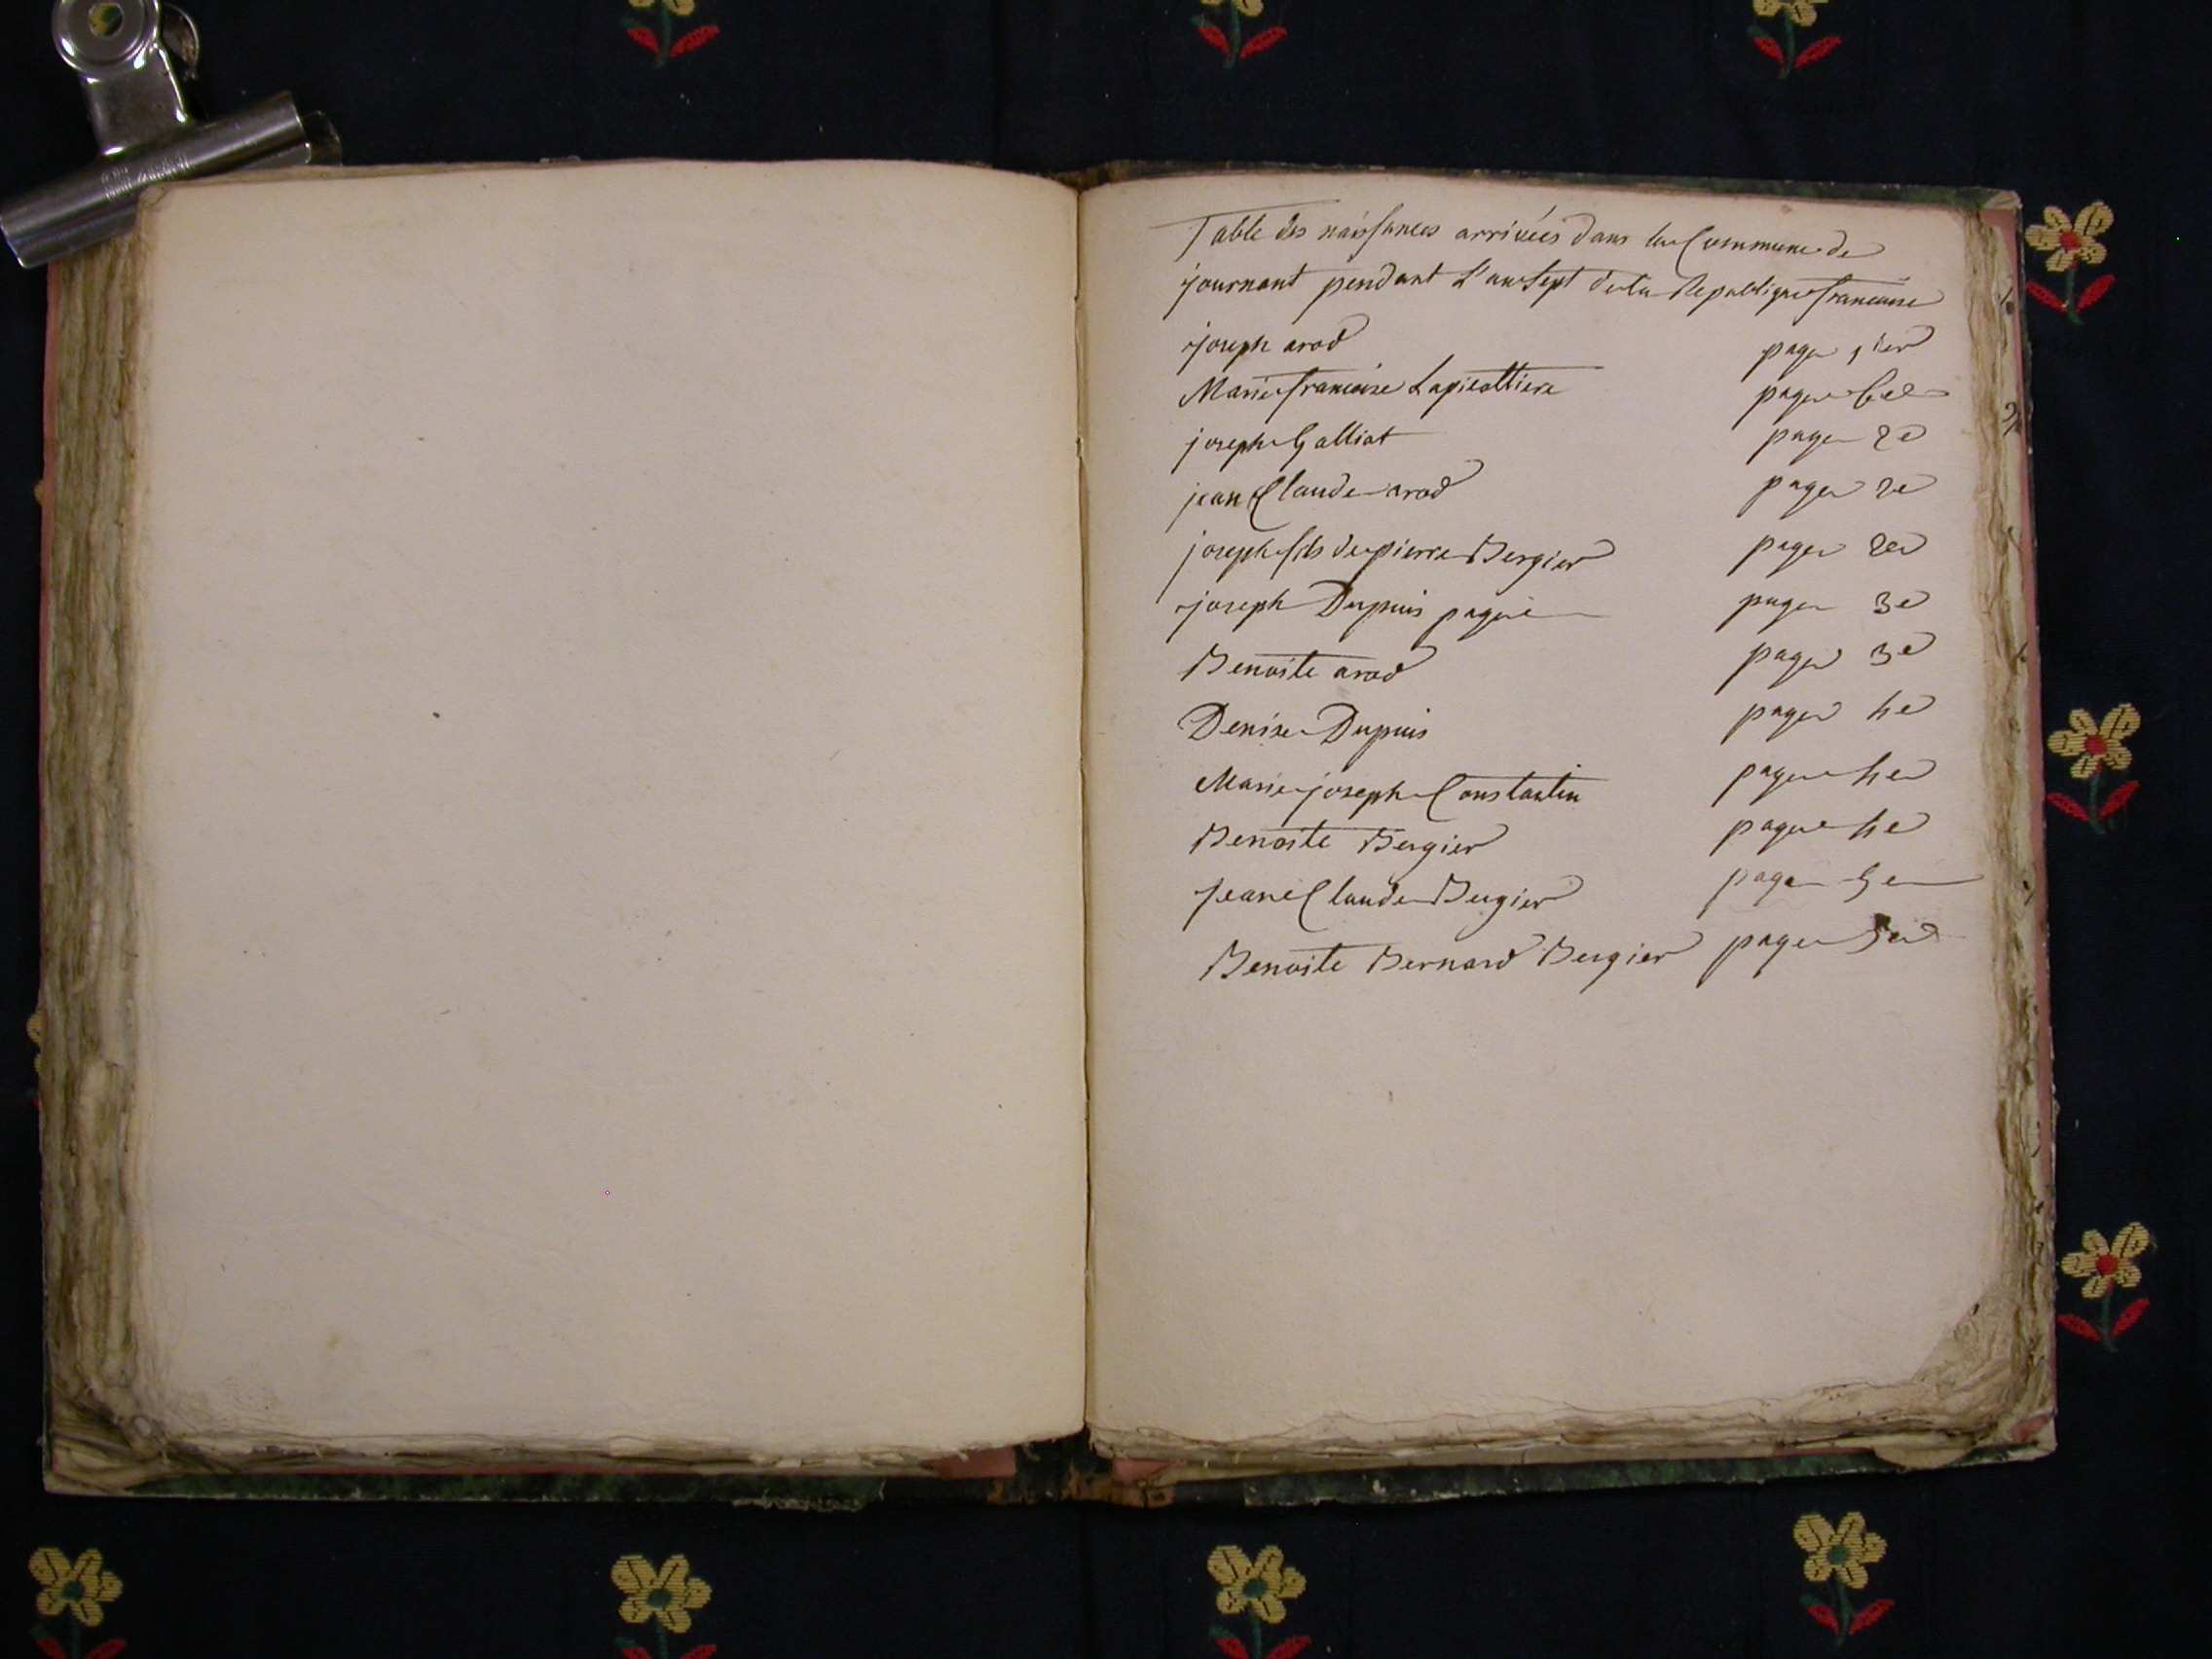 Table des naissances arrivées dans la Commune de
journant pendant L'an sept de la Republique francaise
joseph arod page 1ier
Marie francoise Lapicottiere page
joseph Galliat page 2e
jean Claude arod page 2e
joseph fils de pierre Bergier page 2e
joseph Dupuis page page 3e
Benoite arod page 3e
Denise Dupuis page 4e
Marie joseph Constantin page 4e
Benoite Bergier page 4e
Jean Claude Bergier page 5e
Benoite Bernard Bergier page 5e